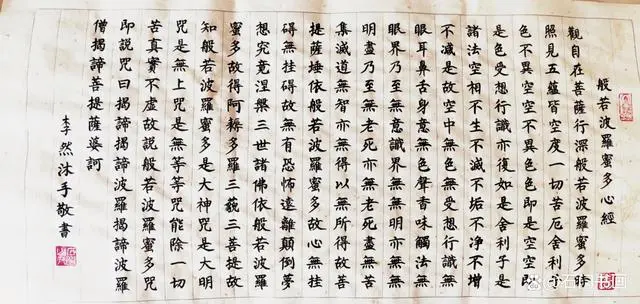 般若波羅蜜多心經
觀自在菩薩行深般若波羅蜜多時
照見五蘊皆空度一切苦厄舍利子
色不異空空不異色色即是空空即
是色受想行識亦復如是舍利子是
諸法空相不生不滅不垢不净不增
不減是故空中無色無受想行識無
眼耳鼻舌身意無色聲香味觸法無
眼界乃至無意識界無無明亦無無
明盡乃至無老死亦無老死盡無苦
集滅道無智亦無得以無所得故菩
提薩埵依般若波羅蜜多故心無挂
礙無挂礙故無有恐怖遠離顛倒夢
想究竟涅槃三世諸佛依般若波羅
蜜多故得阿耨多羅三藐三菩提故
知般若波羅蜜多是大神咒是大明
咒是無上咒是無等等咒能除一切
苦真實不虛故說般若波羅蜜多咒
即說咒曰揭諦揭諦波羅揭諦波羅
僧揭諦菩提薩婆訶
李然沐手敬書